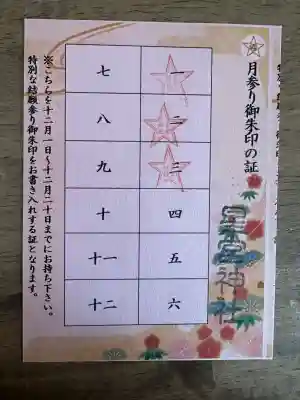 月参り御朱印の証
星宮神社
一
二
三
四
五
六
七
八
九
十
十一
十二
※こちらを十二月一日～十二月二十日までにお持ち下さい。
特別な結願参り御朱印をお書き入れする証となります。